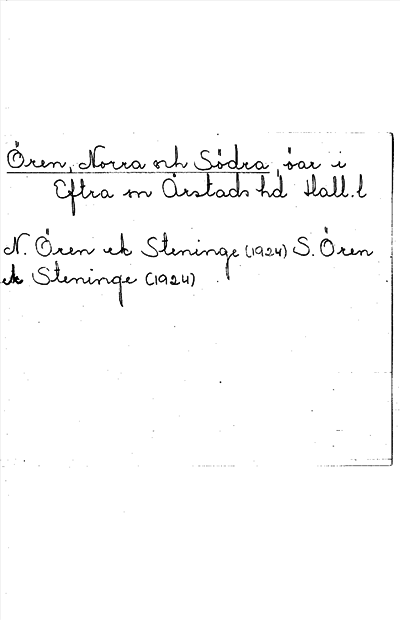 Ören, Norra och Södra, öar i
Eftra sn Årstads hd Hall.l
N. Ören ek Steninge (1924) S. Ören
ek Steninge (1924)